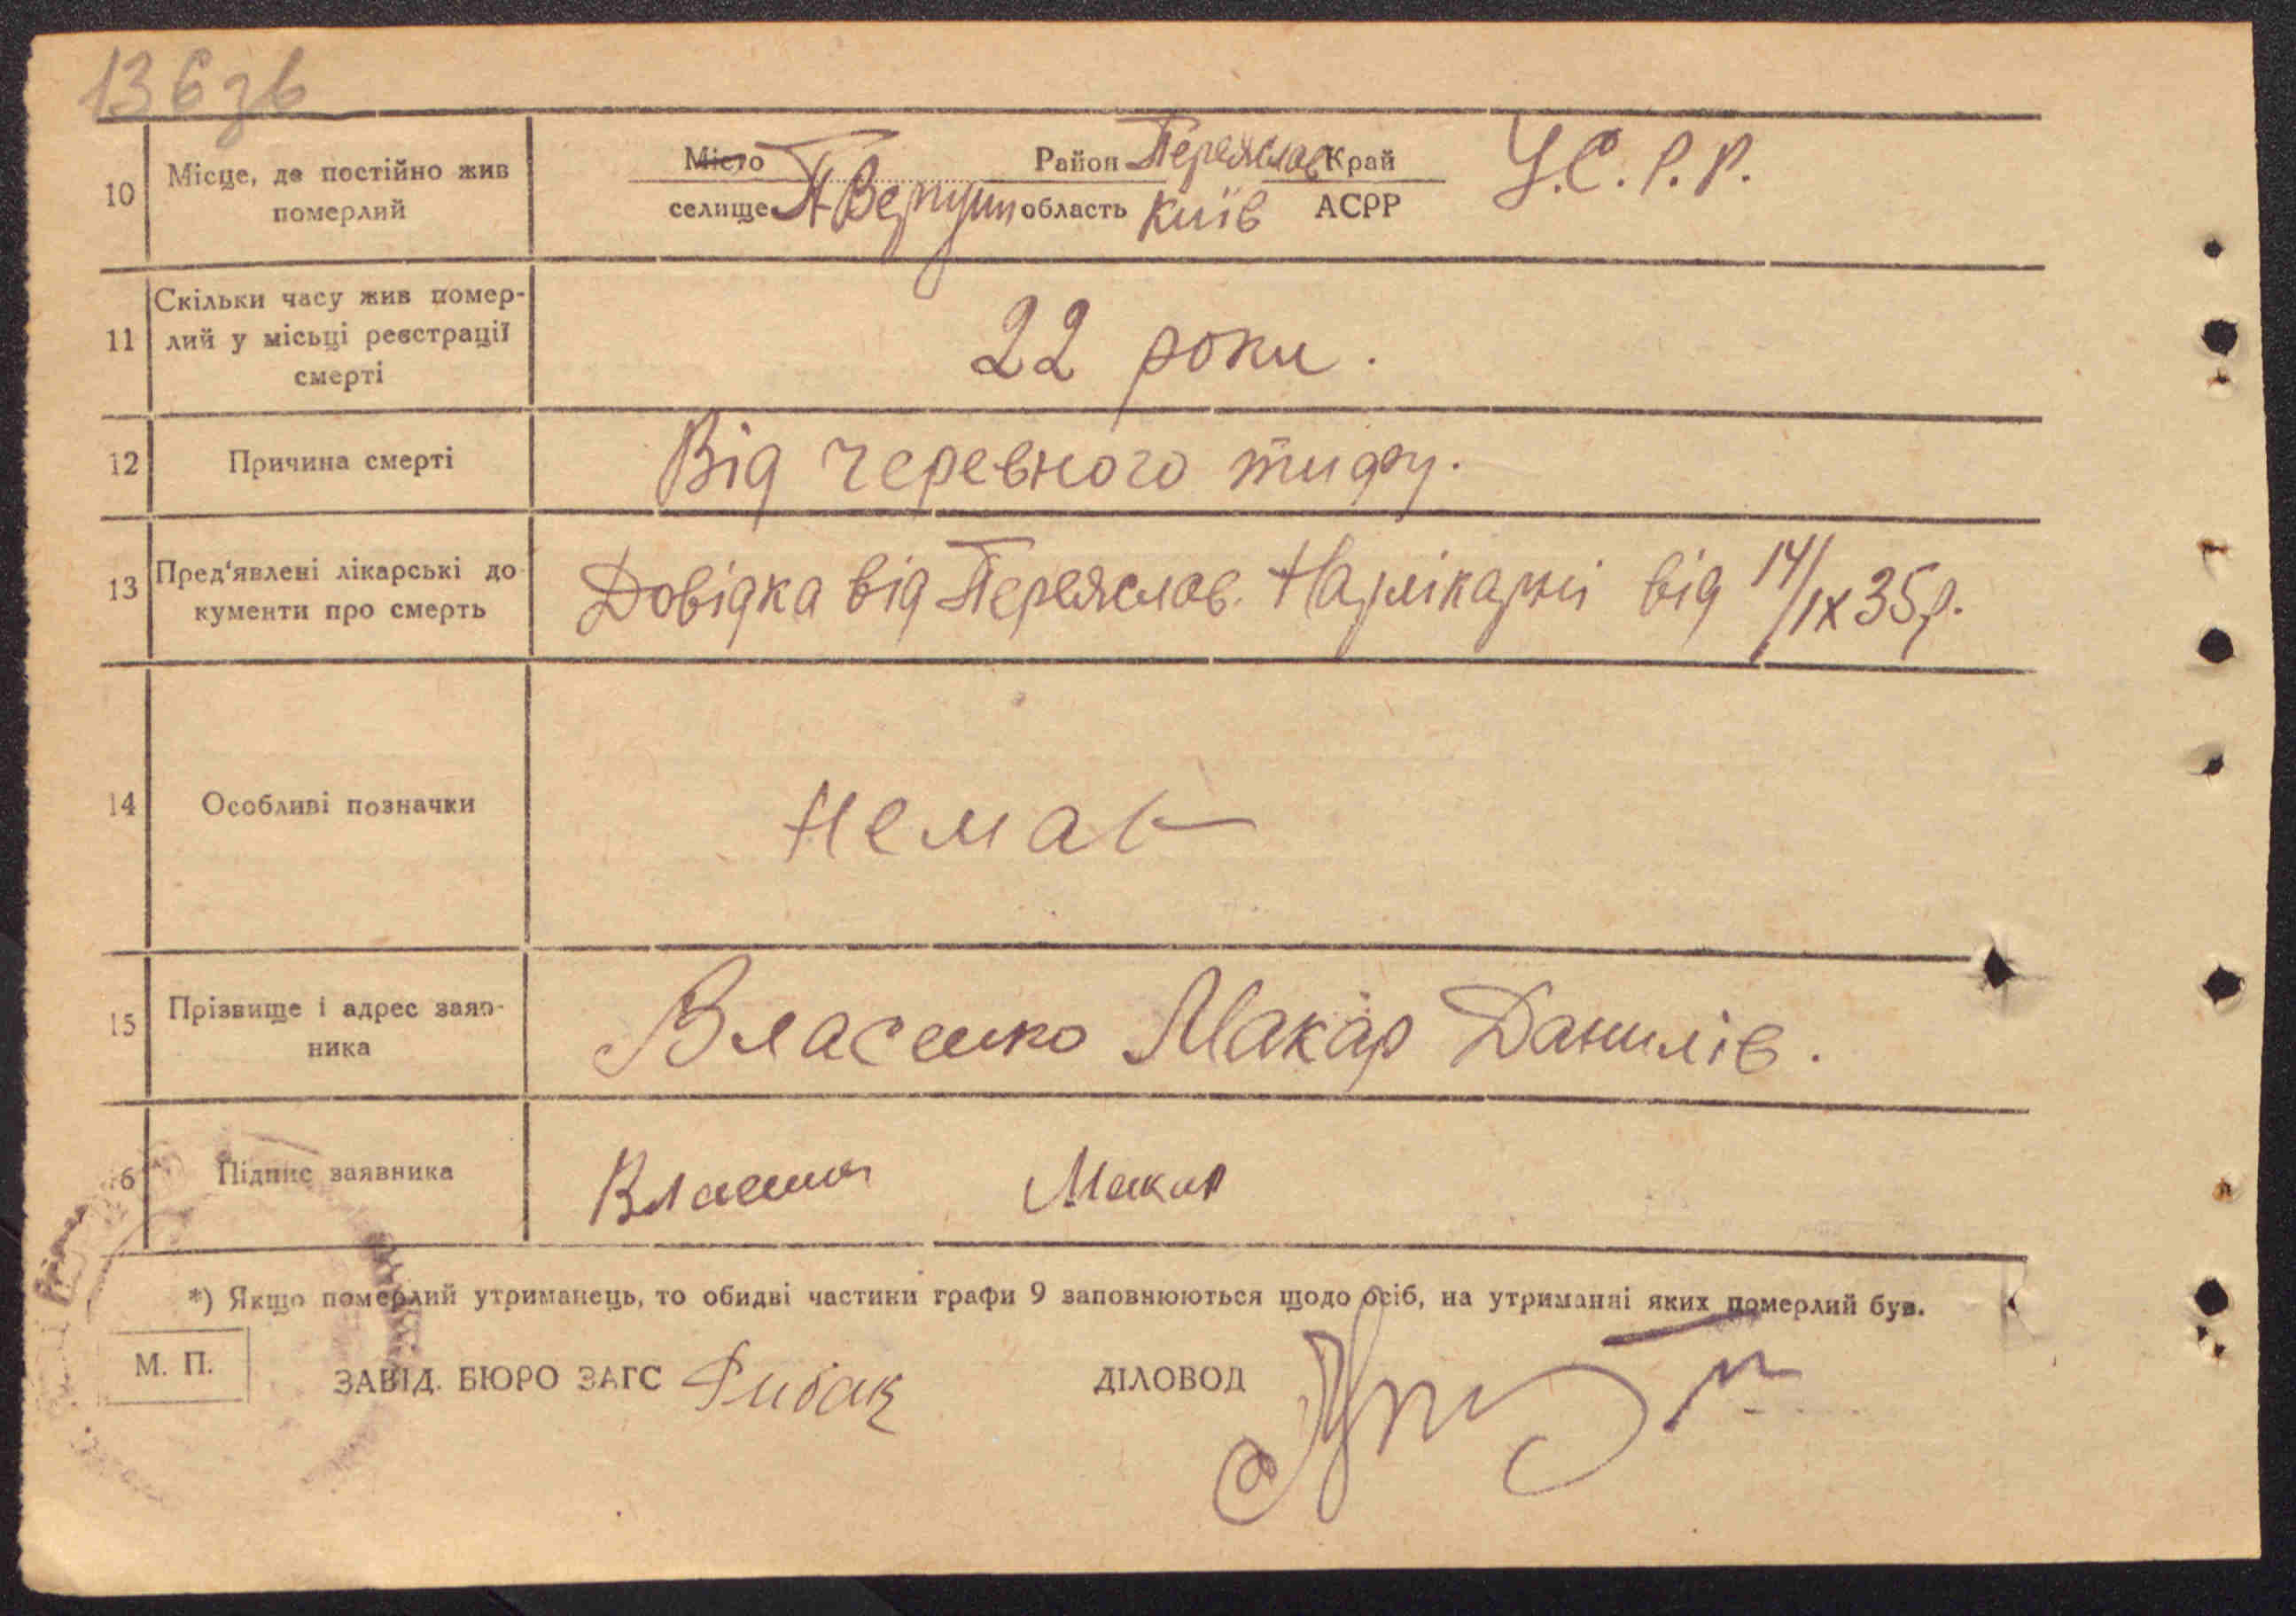 136зв
10 Місце, де постійно жив померлий
Місто Район Переяслав Край У.С.Р.Р.
селище область Київ АСРР
11 Скільки часу жив помер-
лий у місьці реєстрації
смерті
22 роки.
12 Причина смерті Від черевного тифу.
13 Пред'явлені лікарські до-
кументи про смерть
Довідка від Переяслав. Нарлікарні від 14/IX 35 р.
14 Особливі позначки Немає
15 Прізвище і адрес заяв-
ника
Власенко Макар Данилів.
16 Підпис заявника Власенко Макар
*) Якщо померлий утриманець, то обидві частини графи 9 заповнюються щодо осіб, на утриманні яких померлий був.
М. П. ЗАВІД. БЮРО ЗАГС Рибак ДІЛОВОД